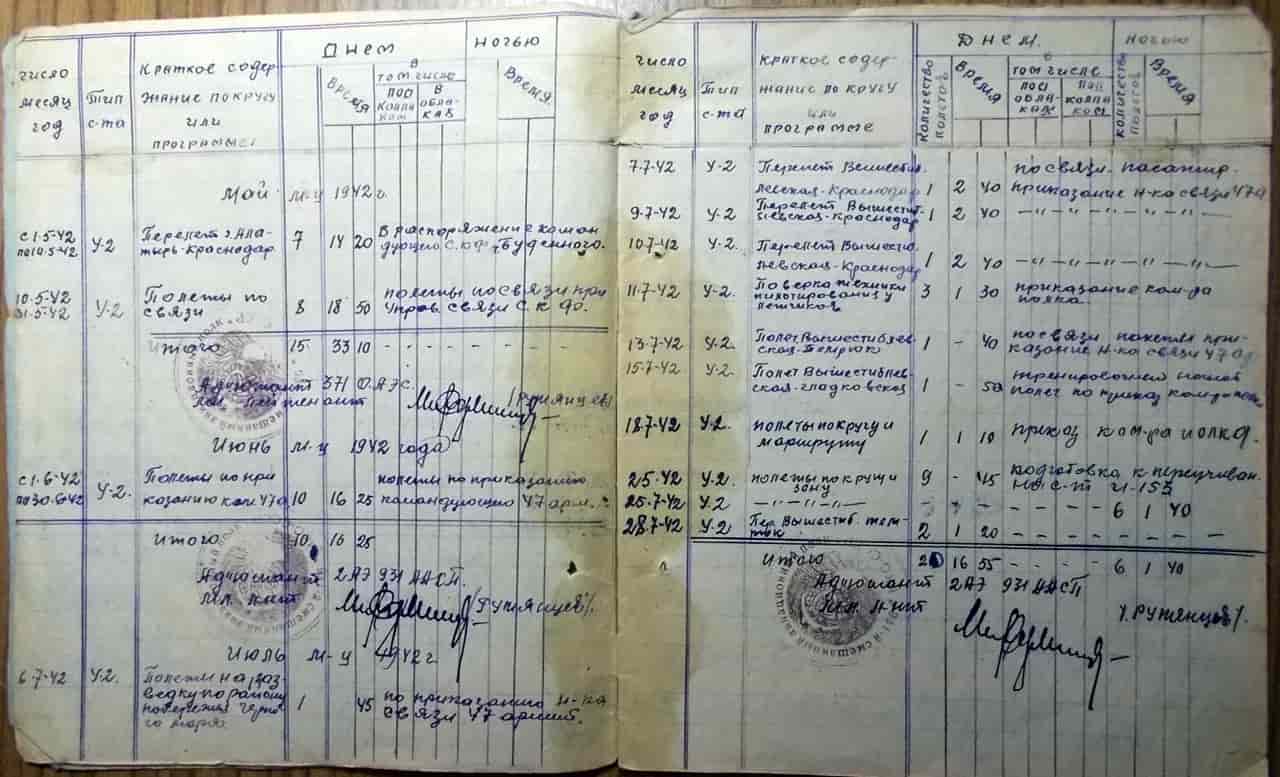 число
месяц
год
Тип
с-та
краткое содер-
жание по кругу
или
программе
Днем
Время
в
том числе
под
колпа
ком
в
обла-
ках
Ночью
Время.
Май м-ц 1942 г.
с 1.5-42
по 10.5-42 У-2 Перелет г. Ала-
тырь-Краснодар 7 14 20 В распоряжение коман
дующего С.К.Ф. т. Буденного.
10.5-42
31.5-42 У-2 Полеты по
связи 8 18 50 полеты по связи при
Упров. связи С.К.Фо.
Итого 15 33 10 - - - - - - -
Адъютант 371 О.А.Эс.
Мл. Лейтенант /Румянцев/
Июнь м-ц 1942 года
с 1.6-42
по 30.6-42 У-2. Полеты по при
казанию ком. 47а 10 16 25 полеты по приказанию
командующего 47 арм.
Итого 10 16 25
Адъютант 2 АЭ 931 ААСП.
Мл. л-нт /Румянцев/.
Июль м-ц 1942 г.
6-7-42 У-2. Полеты на раз-
ведку по району
побережья Черно
го моря 1 45 по приказанию н-ка
связи 47 армии.
число
месяц
год
Тип
с-та
краткое содер-
жание по кругу
или
программе
Днем.
количество
полетов
Время
в
том числе
под
обла-
ках
под
колпа
ком
Ночью
количество
полетов
Время
7.7-42 У-2 Перелет Вышестеб.
левская-Краснодар 1 2 40 по связи. пасажир.
приказание н-ка связи 47а
9.7-42 У-2 Перелет Вышестеб
левская-Краснодар 1 2 40 —"—"—"—"—"—
10.7-42 У-2. Перелет Вышестеб.
левская-Краснодар 1 2 40 —"—"—"—"—"—
11.7-42 У-2. Поверка техники
пилотирования у
летчиков 3 1 30 приказание ком-ра
полка.
13.7-42 У-2. Полет Вышестеблев
ская-Темрюк 1 - 40 по связи при-
казание н-ка связи 47 ар
15.7-42 У-2. Полет Вышестеблев-
ская-Гладковская 1 - 50 тренировочный
полет по приказ
18.7-42 У-2. полеты по кругу и
маршруту 1 1 10 приказ ком-ра полка.
25-42 У-2. полеты по кругу и
зону 9 - 45 подготовка к переучиван.
на с-т И-153
25-7-42 У-2 —"—"—"— - - - - - - 6 1 40
28.7-42 У-2 Пер. Вышестеб. Тем-
рюк 2 1 20 - - - - - - -
Итого 16 55 - - - - 6 1 40
Адъютант 2 АЭ 931 ААСП
Мл. л-нт /Румянцев/.